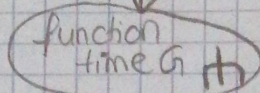 function
time G